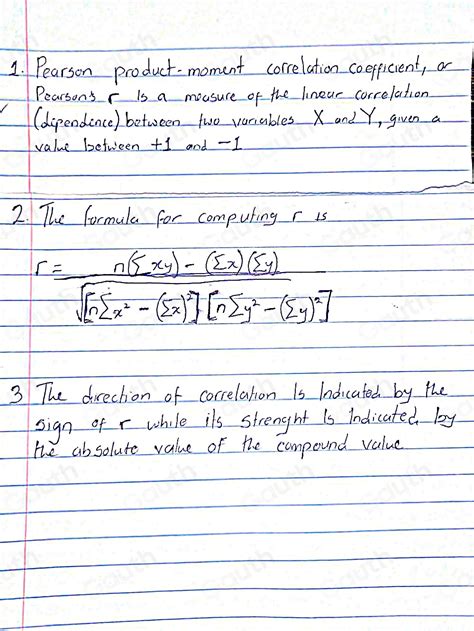 1. Pearson product-moment correlation coefficient, or
Pearson's r Is a measure of the linear correlation
(dipendence) between two variables X and Y, given a
value between +1 and -1
2. The formula for computing r is
r = n(Σxy) - (Σx)(Σy)
√[nΣx² - (Σx)²] [nΣy² - (Σy)²]
3 The direction of correlation Is Indicated by the
sign of r while its strenght Is Indicated by
the absolute value of the compound value